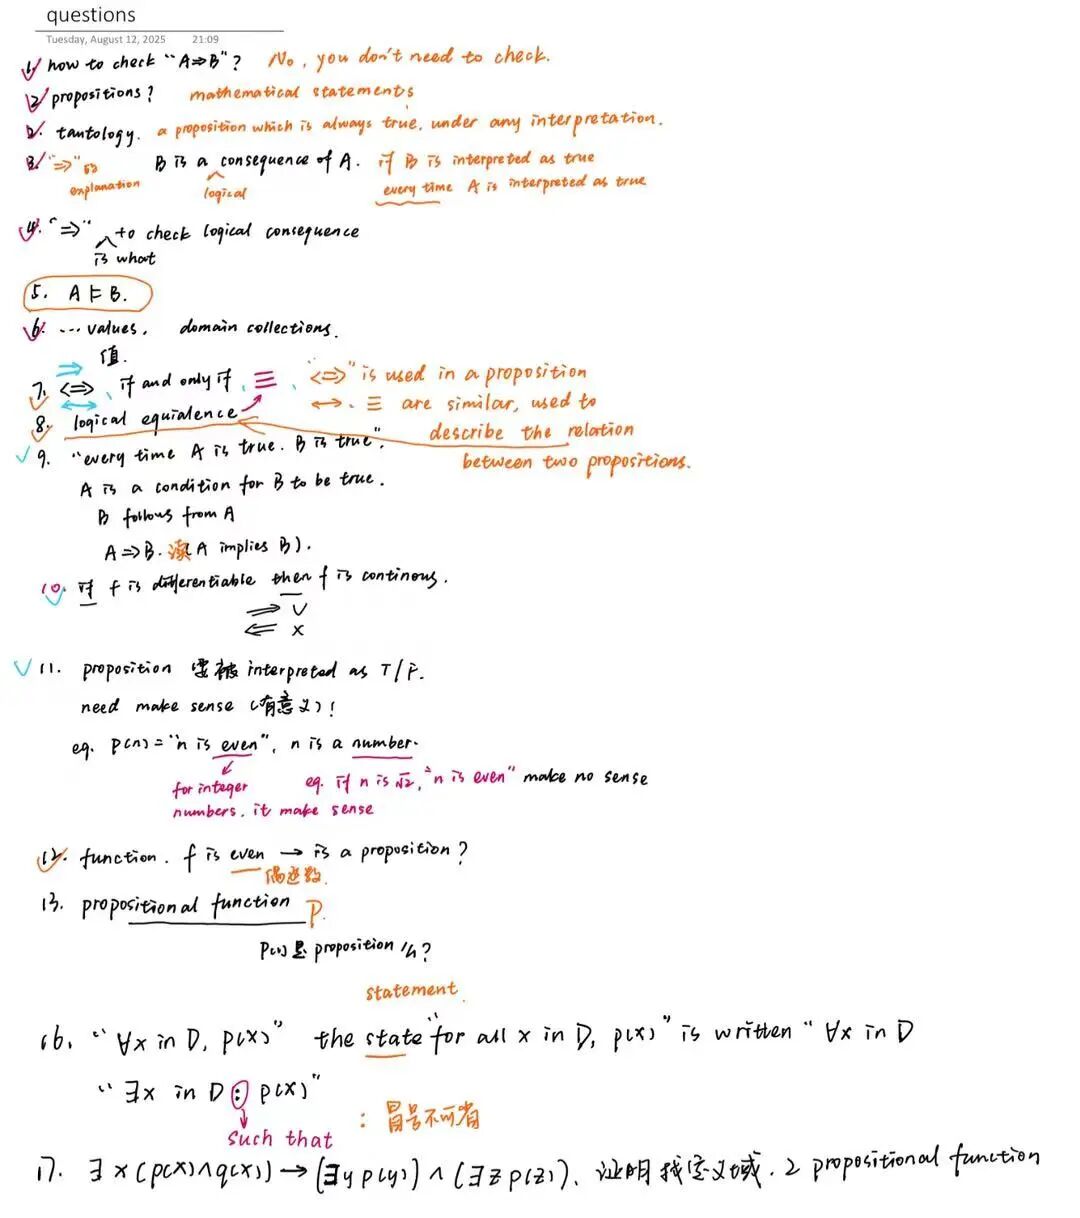 questions
Tuesday, August 12, 2025 21:09
1. how to check "A⇒B"? No, you don't need to check.
2. propositions? mathematical statements
2. tautology. a proposition which is always true, under any interpretation.
3. "⇒" 的 explanation B is a logical consequence of A. if B is interpreted as true
every time A is interpreted as true
4. "⇒" is what to check logical consequence
5. A ⊨ B.
6. ... values, domain collections.
值.
⇒
7. ⇔, if and only if, ≡, "⇔" is used in a proposition
↔, ≡ are similar, used to
8. logical equialence describe the relation
between two propositions.
9. "every time A is true. B is true".
A is a condition for B to be true.
B follows from A
A⇒B. 读(A implies B).
10. if f is differentiable then f is continous.
⇒ ✓
⇐ ×
11. proposition 要被 interpreted as T/F.
need make sense (有意义)!
eg. p(n)="n is even", n is a number.
for integer eg. if n is √2, "n is even" make no sense
numbers, it make sense
12. function. f is even → is a proposition?
偶函数
13. propositional function P.
P(x) 是 proposition 么?
statement
16. "∀x in D, p(x)" the state "for all x in D, p(x)" is written "∀x in D
"∃x in D : p(x)"
: 冒号不可省
such that
17. ∃x(p(x)∧q(x)) → (∃y p(y)) ∧ (∃z p(z)), 证明找定义域. 2 propositional function